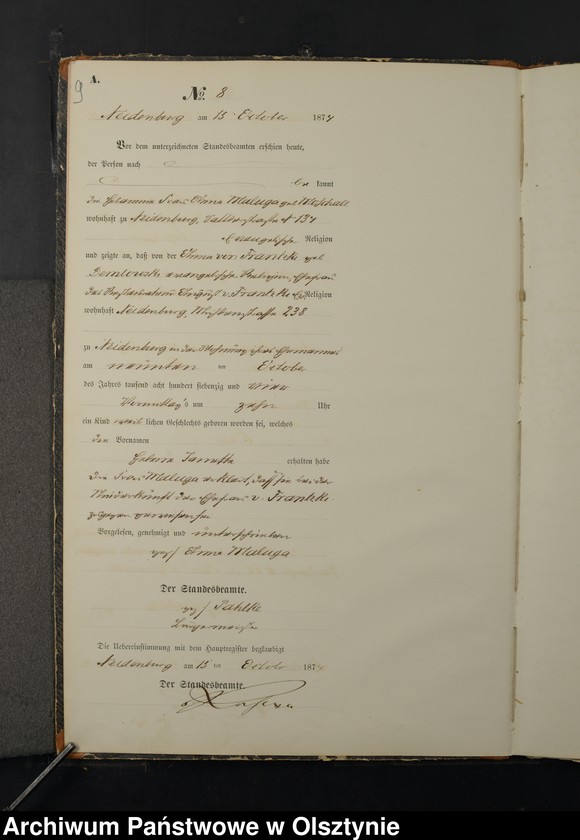 9
A.
№ 8
Neidenburg am 13 October 1874
Vor dem unterzeichneten Standesbeamten erschien heute,
der Person nach
be kannt
die Hebamme Frau Anna Maluga geb
wohnhaft zu Neidenburg, № 134
evangelische Religion
und zeigte an, daß von der Anna von Frantzki geb
evangelischer Religion, Ehefrau
des August v. Frantzki Religion
wohnhaft Neidenburg, 238
zu Neidenburg in der Wohnung ihres Ehemannes
am neunten ten October
des Jahres tausend acht hundert siebenzig und vier
Vormittags um zehn Uhr
ein Kind weib lichen Geschlechts geboren worden sei, welches
den Vornamen
erhalten habe
Die Frau Maluga erklärt, daß sie bei der
Niederkunft der Ehefrau v. Frantzki
zugegen gewesen sei
Vorgelesen, genehmigt und unterschrieben
gez/ Anna Maluga
Der Standesbeamte.
gez/ Pahlke
Bürgermeister
Die Uebereinstimmung mit dem Hauptregister beglaubigt
Neidenburg am 13 ten October 1874
Der Standesbeamte.
Archiwum Państwowe w Olsztynie